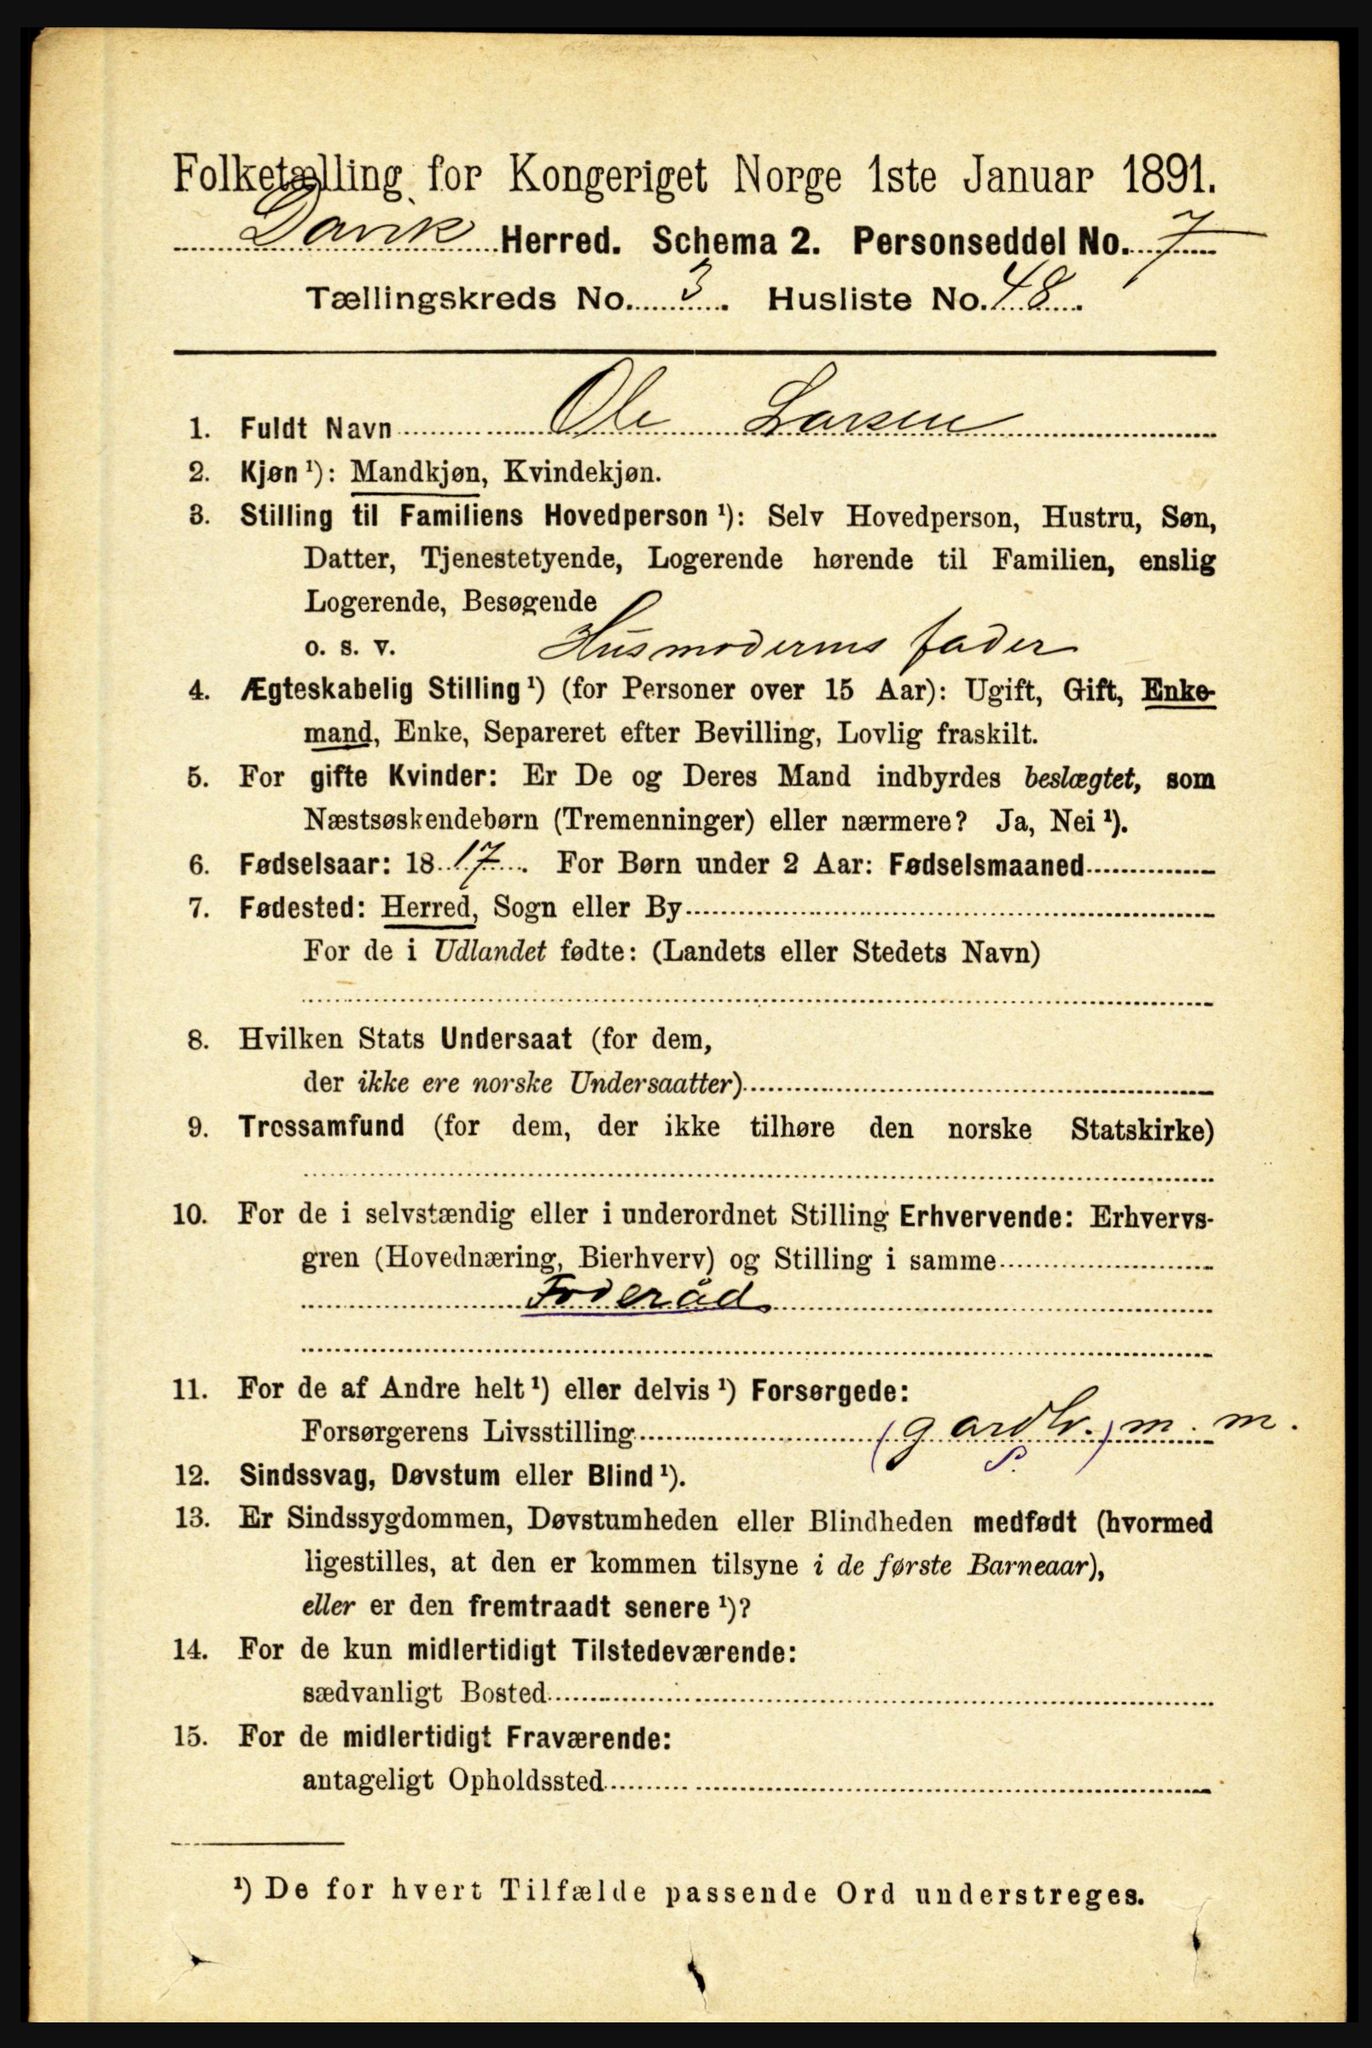 Folketælling for Kongeriget Norge 1ste Januar 1891.
Davik Herred. Schema 2. Personseddel No. 7
Tællingskreds No. 3. Husliste No. 48.
1. Fuldt Navn Ole Larsen
2. Kjøn ¹): Mandkjøn, Kvindekjøn.
3. Stilling til Familiens Hovedperson ¹): Selv Hovedperson, Hustru, Søn,
Datter, Tjenestetyende, Logerende hørende til Familien, enslig
Logerende, Besøgende
o. s. v. Husmoderens fader
4. Ægteskabelig Stilling ¹) (for Personer over 15 Aar): Ugift, Gift, Enke-
mand, Enke, Separeret efter Bevilling, Lovlig fraskilt.
5. For gifte Kvinder: Er De og Deres Mand indbyrdes beslægtet, som
Næstsøskendebørn (Tremenninger) eller nærmere? Ja, Nei ¹).
6. Fødselsaar: 1817. For Børn under 2 Aar: Fødselsmaaned
7. Fødested: Herred, Sogn eller By
For de i Udlandet fødte: (Landets eller Stedets Navn)
8. Hvilken Stats Undersaat (for dem,
der ikke ere norske Undersaatter)
9. Trossamfund (for dem, der ikke tilhøre den norske Statskirke)
10. For de i selvstændig eller i underordnet Stilling Erhvervende: Erhvervs-
gren (Hovednæring, Bierhverv) og Stilling i samme
Foderåd
11. For de af Andre helt ¹) eller delvis ¹) Forsørgede:
Forsørgerens Livsstilling (gardbr.) m. m.
S.
12. Sindssvag, Døvstum eller Blind ¹).
13. Er Sindssygdommen, Døvstumheden eller Blindheden medfødt (hvormed
ligestilles, at den er kommen tilsyne i de første Barneaar),
eller er den fremtraadt senere ¹)?
14. For de kun midlertidigt Tilstedeværende:
sædvanligt Bosted
15. For de midlertidigt Fraværende:
antageligt Opholdssted
¹) De for hvert Tilfælde passende Ord understreges.